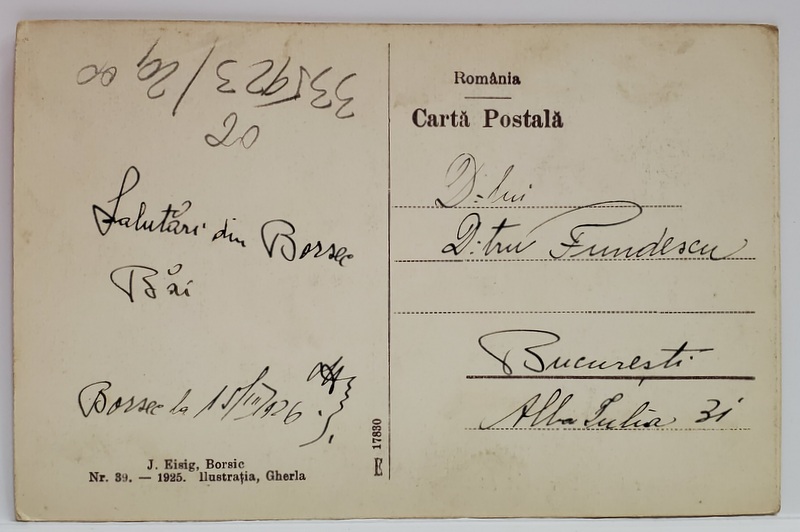 20
Salutări din Borsec
Băi
Borsec la 15/ /926
J. Eisig, Borsic
Nr. 39. — 1925. Ilustrația, Gherla
E 17830
România
Cartă Postală
D-lui
D-tru Fundescu
București
Alba Iulia 31